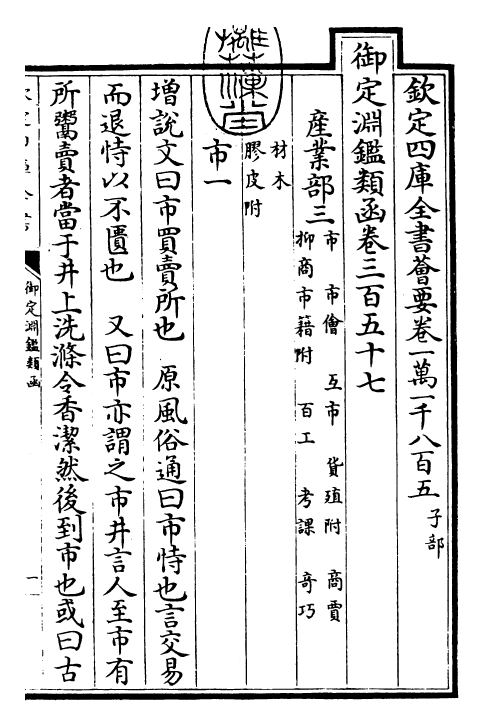 欽定四庫全書薈要卷一萬一千八百五 子部
御定淵鑑類函卷三百五十七
産業部三
市 市儈 互市 貨殖附 商賈
抑商市籍附 百工 考課 竒巧
材木
膠皮附
市一
增說文曰市買賣所也 原風俗通曰市恃也言交易
而退恃以不匱也 又曰市亦謂之市井言人至市有
所鬻賣者當于井上洗滌令香潔然後到市也或曰古
御定淵鑑類函
一